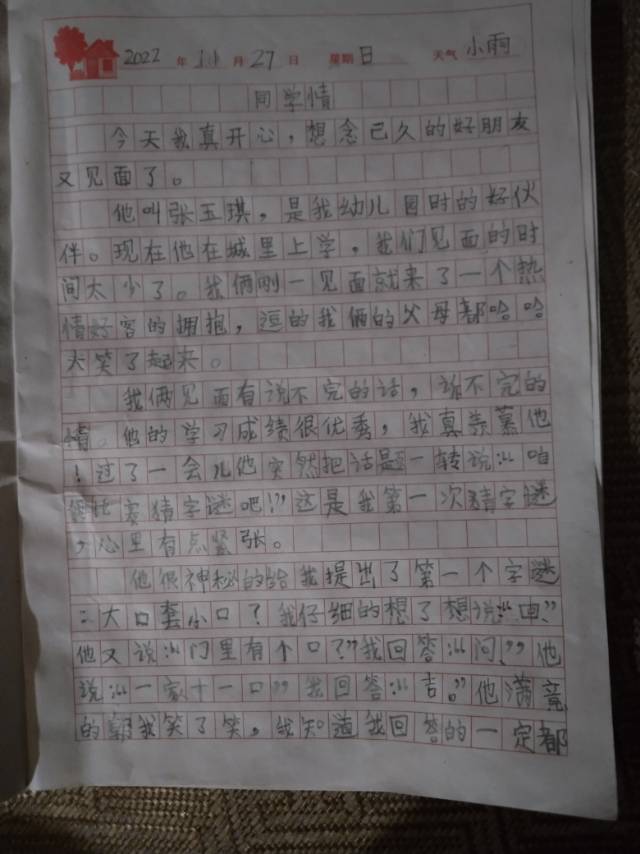 2022年11月27日 星期日 天气小雨
同学情
今天我真开心，想念已久的好朋友
又见面了。
他叫张玉琪，是我幼儿园时的好伙
伴。现在他在城里上学，我们见面的时
间太少了。我俩刚一见面就来了一个热
情好客的拥抱，逗的我俩的父母都哈哈
大笑了起来。
我俩见面有说不完的话，诉不完的
情。他的学习成绩很优秀，我真羡慕他
！过了一会儿他突然把话题一转说：“咱
俩比赛猜字谜吧！”这是我第一次猜字谜
，心里有点紧张。
他很神秘的给我提出了第一个字谜
：大口套小口？我仔细的想了想说：“回”
他又说：“门里有个口？”我回答：“问”，他
说：“一家十一口”我回答：“吉。”他满意
的朝我笑了笑，我知道我回答的一定都